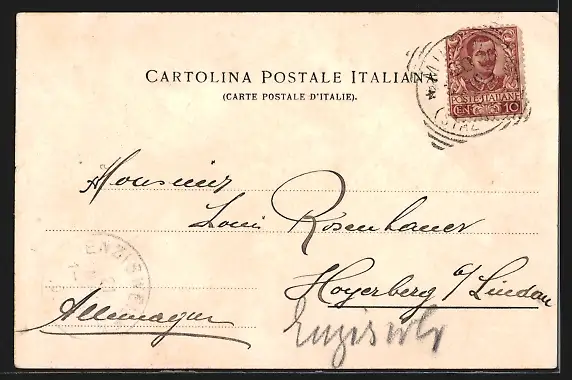 CARTOLINA POSTALE ITALIANA
(CARTE POSTALE D'ITALIE).
POSTE ITALIANE
CENT 10
MIL
(STAZ
Monsieur
Louis Rosenhauer
Hoyerberg b/Lindau
Allemagne
Enzisw
ENZISWE